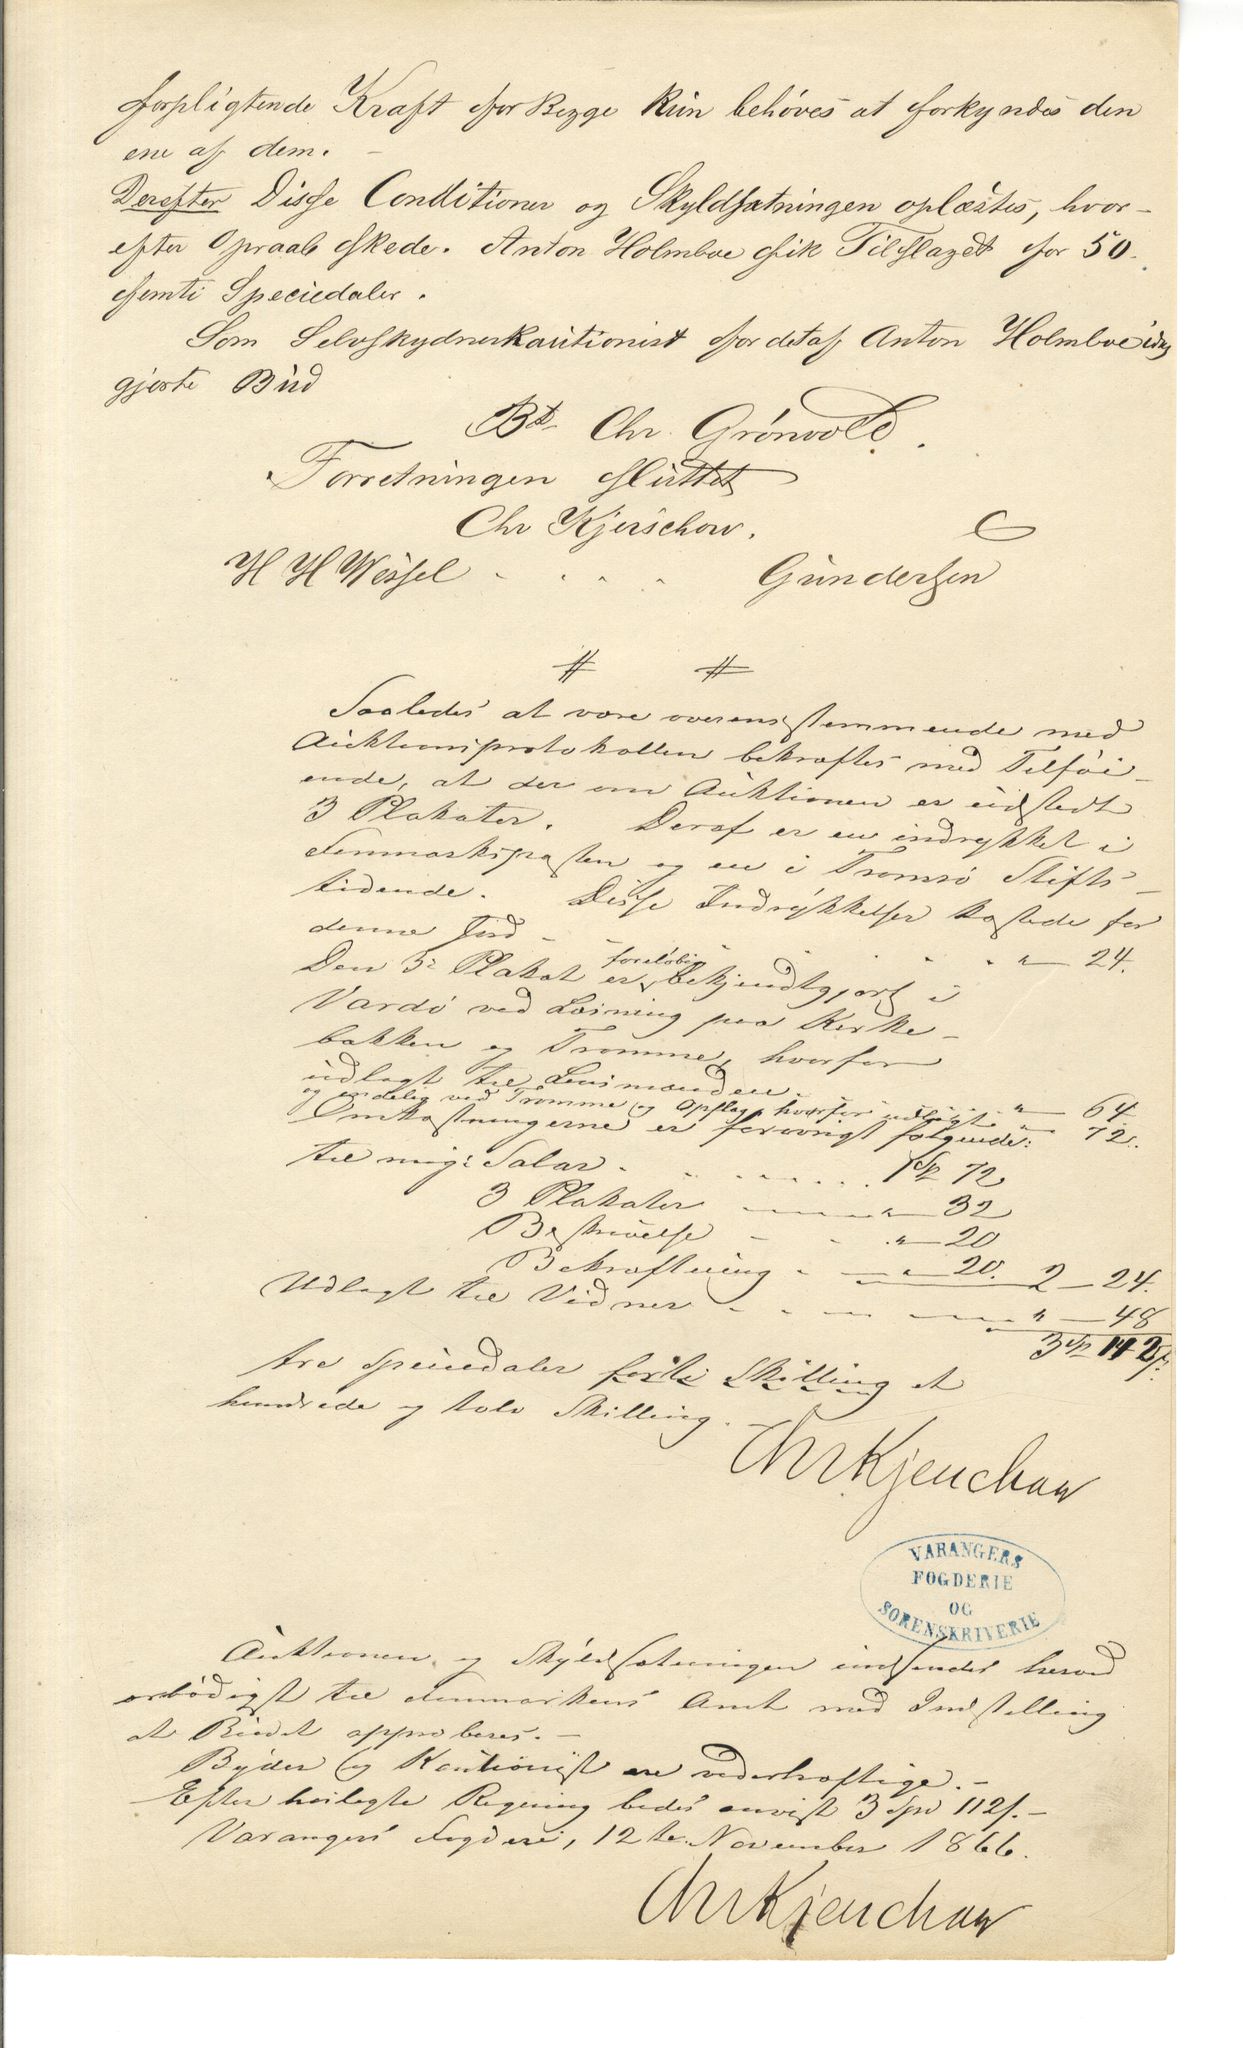 forpligtende Kraft for Begge kun behöves at forkyndes den
ene af dem. –
Derefter Disse Conditioner og Skyldsætningen oplæstes, hvor-
efter Opraab skede. Anton Holmboe fik Tilslaget for 50.
femti Speciedaler.
Som Selvskydnerkautionist for det af Anton Holmboe
gjorte Bud
Chr. Grönvold.
Forretningen sluttet
Chr Kjerschow.
H H Wessel - - - - Gundersen
# #
Saaledes at være overensstemmende med
Auktionsprotokollen bekræftes med Tilföi-
ende, at der om Auktionen er udstedt
3 Plakater. Deraf er en indrykket i
Finmarksposten og en i Tromsö Stifts-
tidende. Disse Indrykkelser kostede for
denne Jord - - - - - " — 24.
Den 3die Plakat er foreløbig bekjendtgjort i
Vardö ved Læsning paa Kirke-
bakken og Tromme, hvorfor
udlagt til Lensmanden " — 64
og endelig ved Tromme og Opslag, hvorfor udlagt " — 72.
Omkostningerne er forøvrigt følgende:
til mig: Salær - - - - 1 Sp 72
3 Plakater — " — 32
Beskrivelse - - " — 20
Bekræftning - — " — 20. 2 — 24.
Udlagt til Vidner - - — — " — 48
3 Sp 112 s.
tre Speciedaler forti Skilling et
hundrede og tolv Skilling. –
Chr Kjerschow
VARANGERS
FOGDERIE
OG
SORENSKRIVERIE
Auktionen og Skyldsætningen indsendes herved
ærbödigst til Finmarkens Amt med Indstilling
at Budet approberes. –
Byder og Kautionist ere vederhæftige. –
Efter heilagte Regning bedes anvist 3 Spd 112 s. –
Varangers Fogderi, 12te November 1866.
Chr Kjerschow